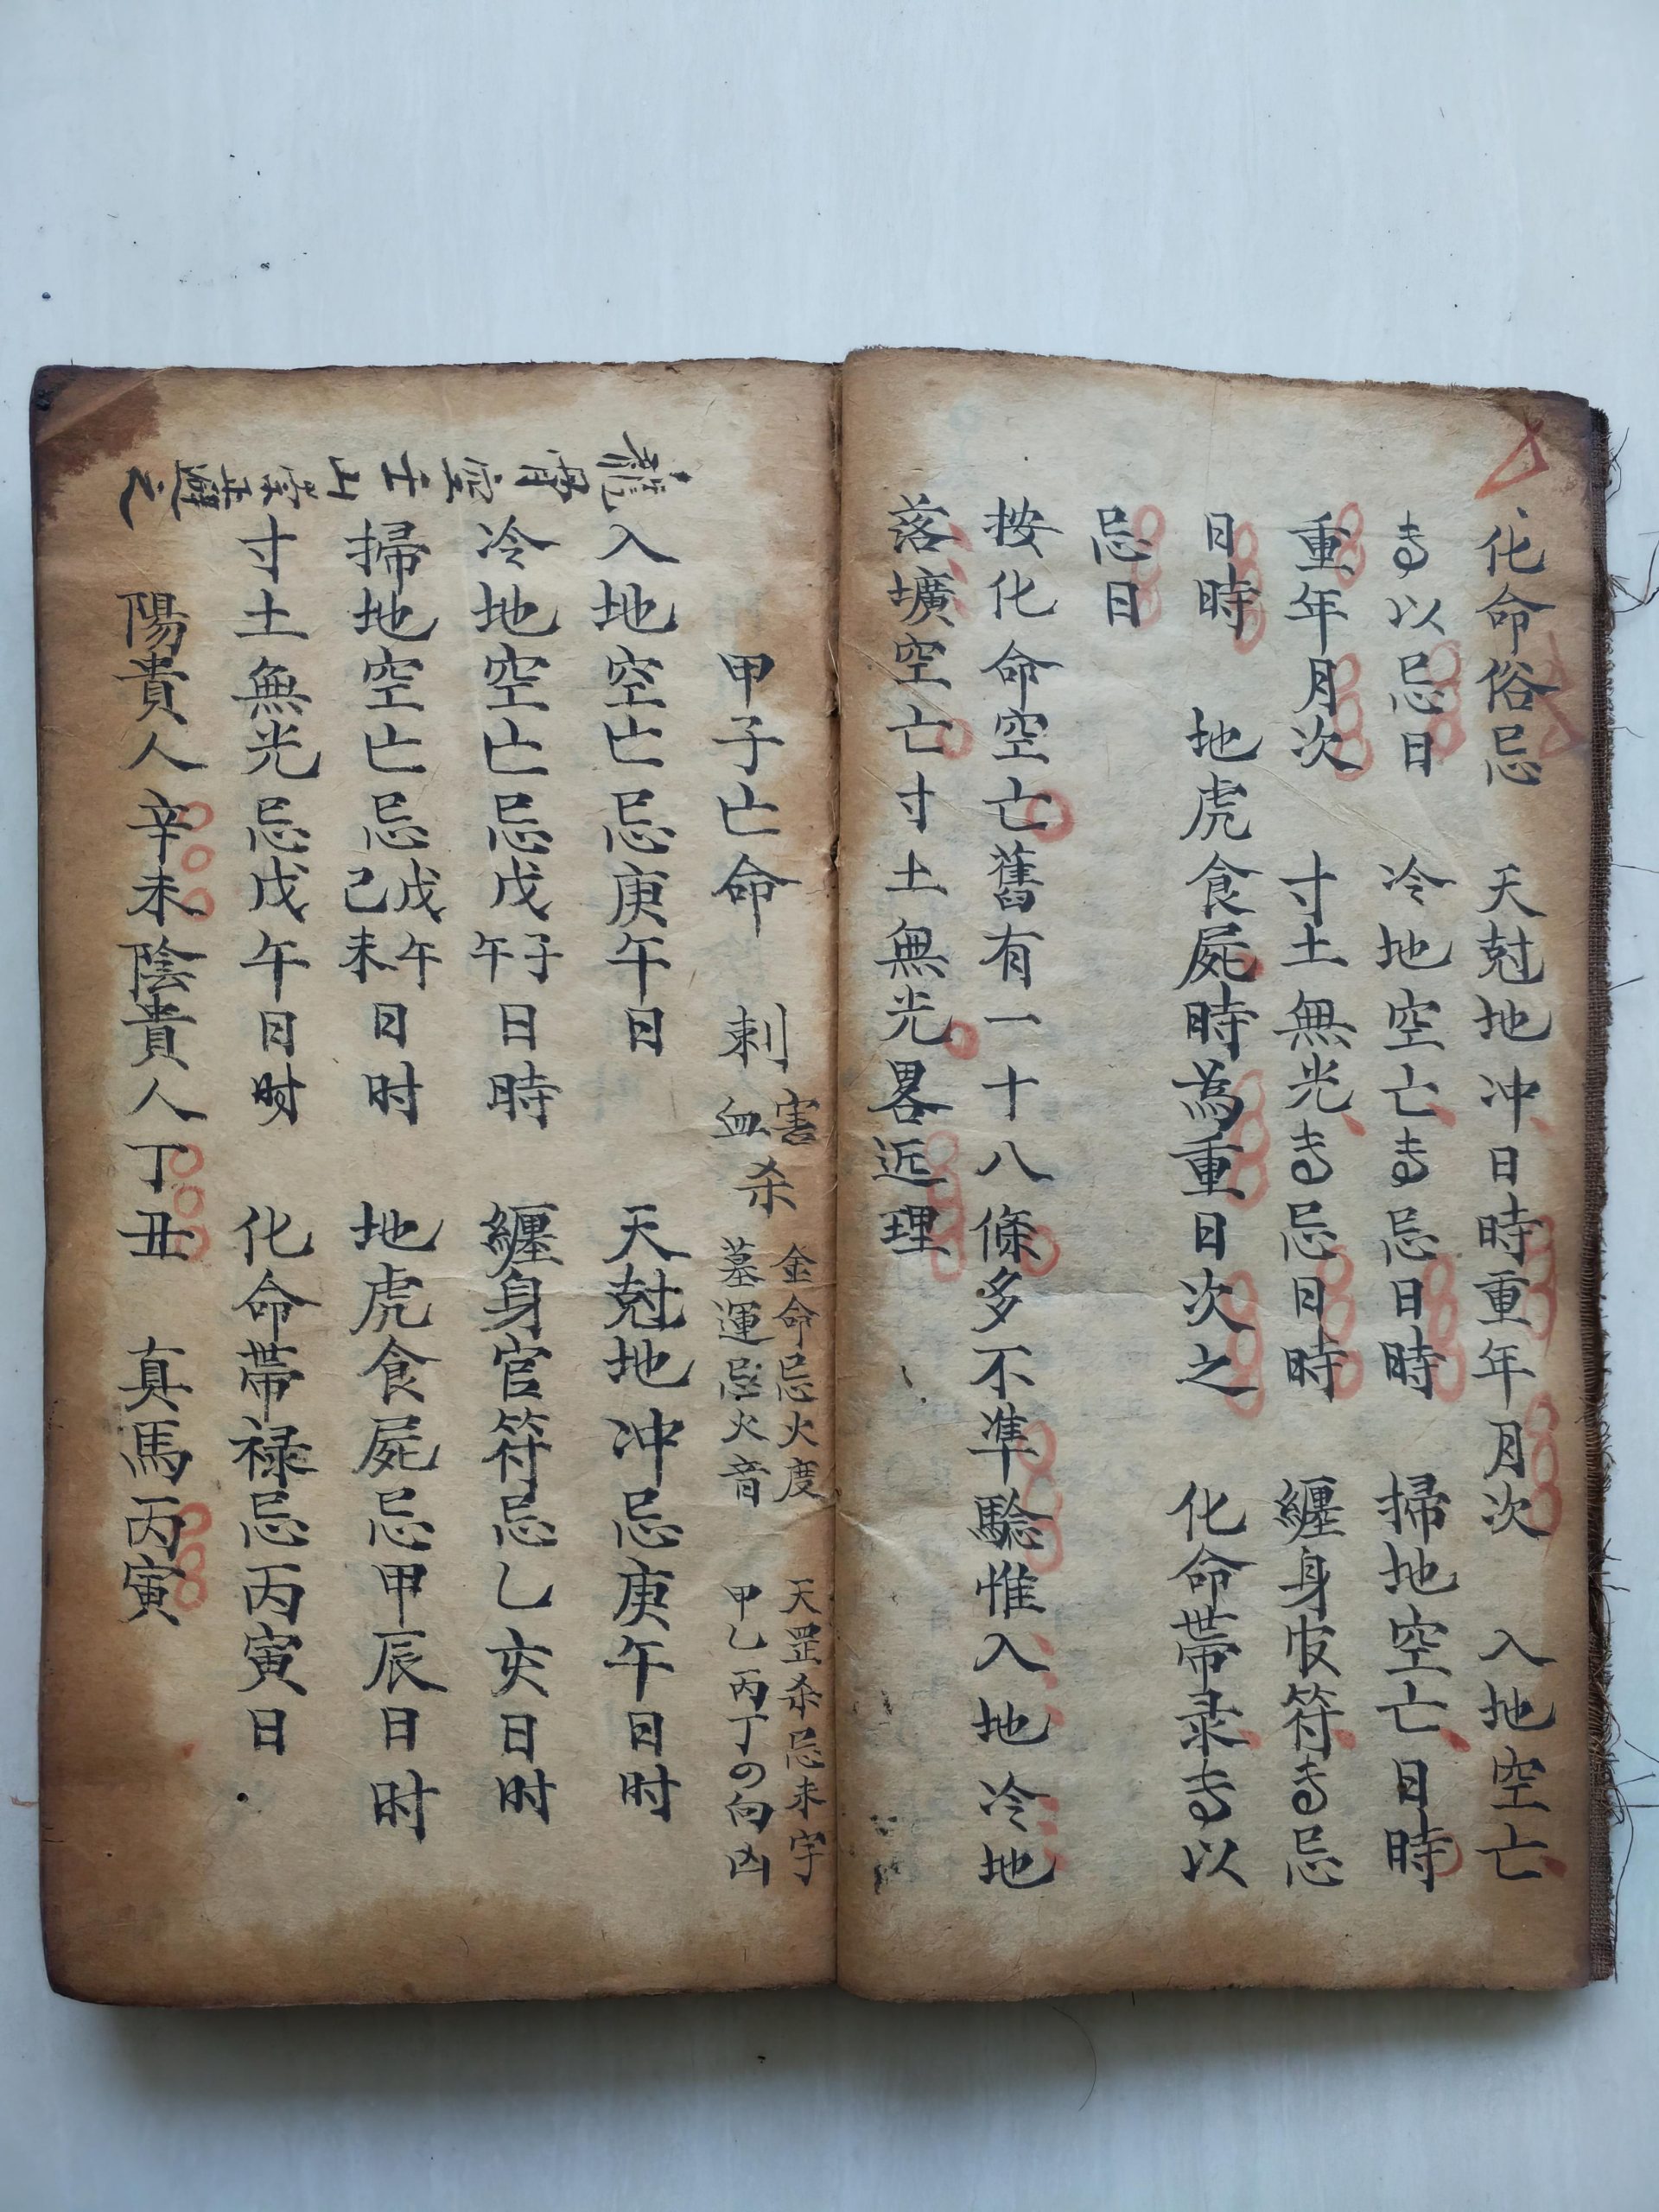 化命俗忌 天尅地冲日時重年月次 入地空亡
以忌日 冷地空亡 忌日時 掃地空亡日時
重年月次 寸土無光 忌日時 纏身官符 忌
日時 地虎食屍時為重日次之 化命帶录 以
忌日
按化命空亡舊有一十八條多不準驗惟入地冷地
落壙空亡寸土無光畧近理
甲子亡命 刺血 害杀 金命忌火度 墓運忌火音 天罡杀忌未字 甲乙丙丁 向凶
入地空亡忌庚午日 天尅地冲忌庚午日时
冷地空亡忌戊子午日時 纏身官符忌乙亥日时
掃地空亡忌戊午己未日时 地虎食屍忌甲辰日时
寸土無光忌戊午日时 化命帶禄忌丙寅日
陽貴人辛未陰貴人丁丑 真馬丙寅
龍 空亡山 避之